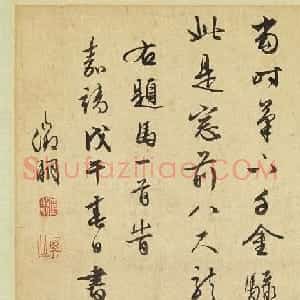 當時筆下千金騄
此是窓前八尺龍
右題馬一首昔
嘉靖戊午春日書
徵明
Shufaziliao.com